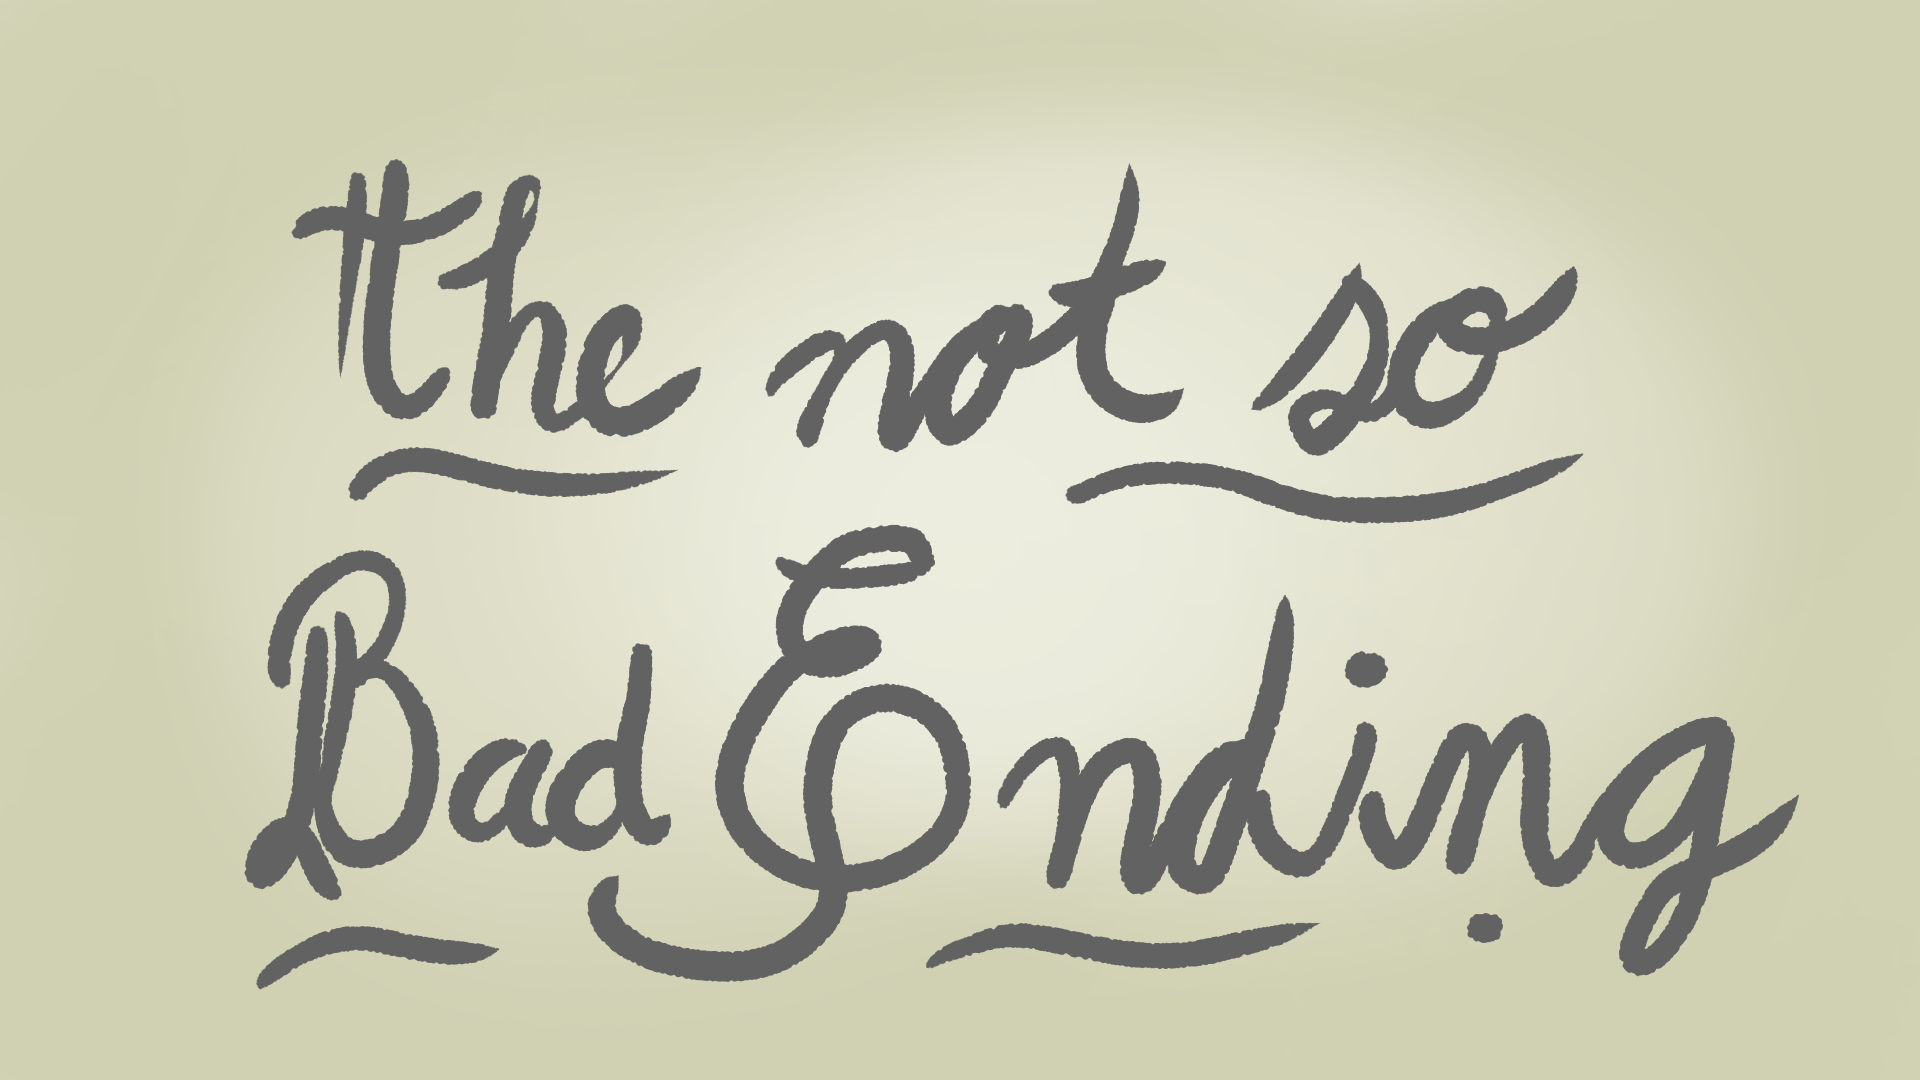 the not so
Bad Ending